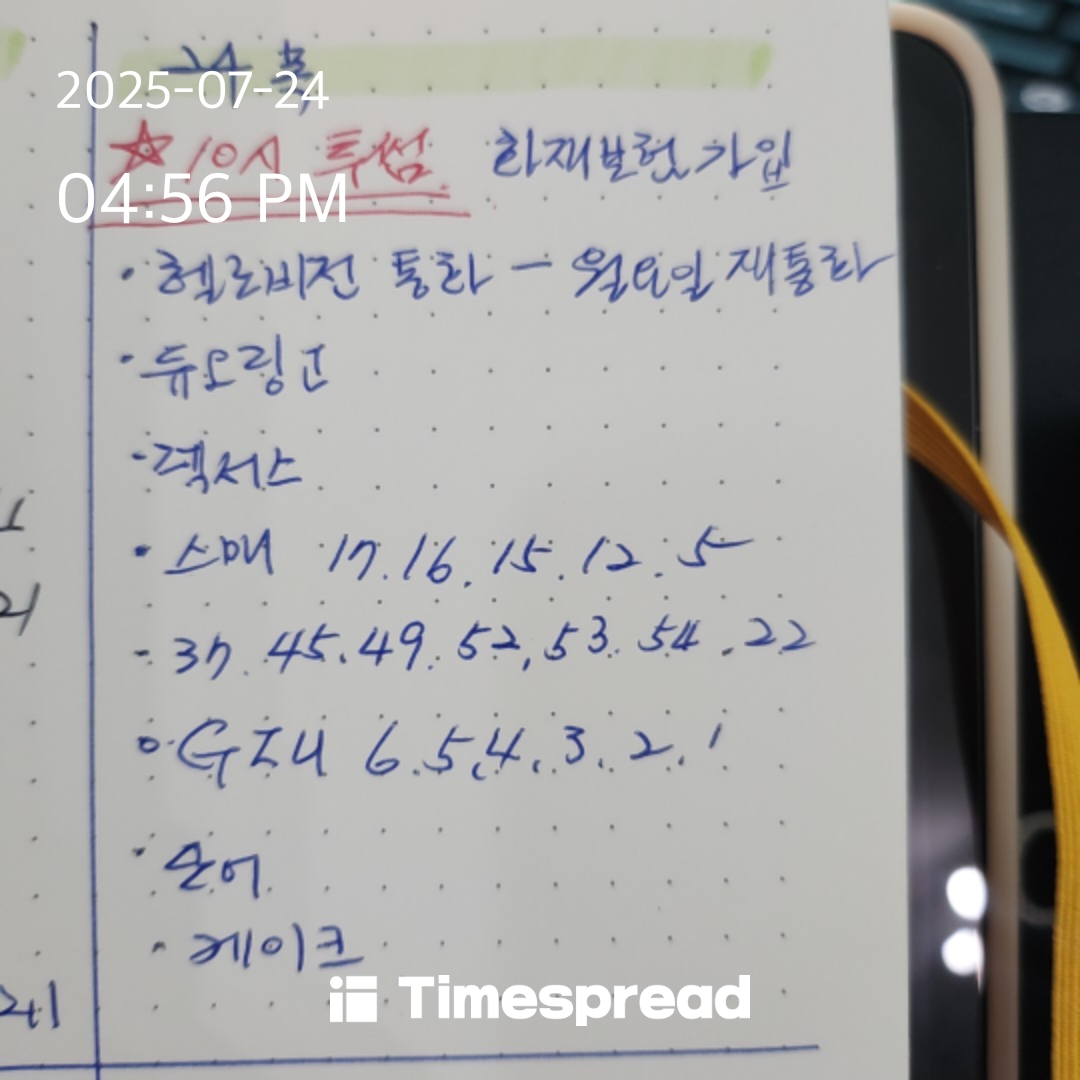 24 목
2025-07-24
☆10시 투썸 화재보험 가입
04:56 PM
· 헬로비전 통화 - 월요일 재통화
· 듀오링고
· 렉서스
· 스매 17. 16. 15. 12. 5
- 37. 45. 49. 52, 53. 54. 22
6. 5, 4. 3. 2. 1
· 케이크
Timespread